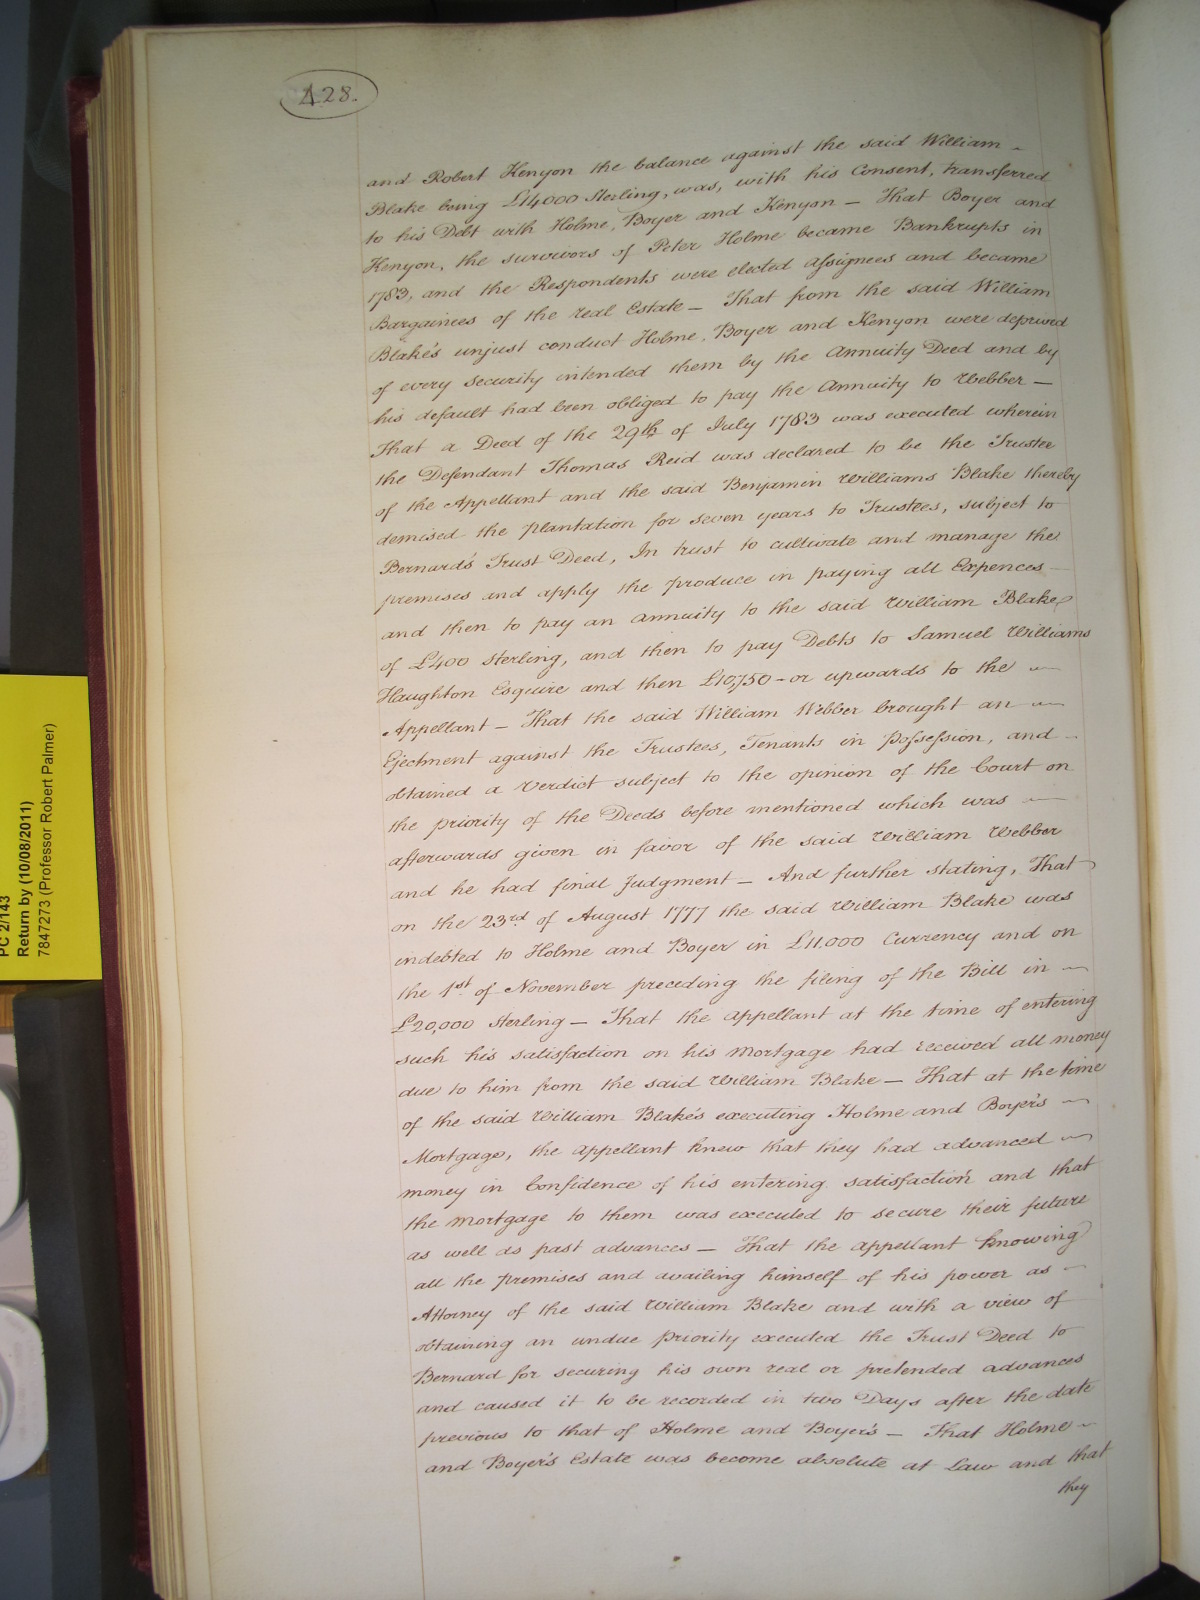 428.
and Robert Kenyon the balance against the said William
Blake being £14000 Sterling, was, with his Consent, transferred
to his Debt with Holme, Boyer and Kenyon — That Boyer and
Kenyon, the survivors of Peter Holme became Bankrupts in
1783, and the Respondents were elected Assignees and became
Bargainees of the real Estate — That from the said William
Blake's unjust conduct Holme, Boyer and Kenyon were deprived
of every security intended them by the Annuity Deed and by
his default had been obliged to pay the Annuity to Webber —
That a Deed of the 29th of July 1783 was executed wherein
the Defendant Thomas Reid was declared to be the Trustee
of the Appellant and the said Benjamin Williams Blake thereby
demised the plantation for seven years to Trustees, subject to
Bernard's Trust Deed, In trust to cultivate and manage the
premises and apply the produce in paying all Expences —
and then to pay an annuity to the said William Blake
of £400 sterling, and then to pay Debts to Samuel Williams
Haughton Esquire and then £10,750 - or upwards to the —
Appellant — That the said William Webber brought an —
Ejectment against the Trustees, Tenants in Possession, and -
obtained a Verdict subject to the opinion of the Court on
the priority of the Deeds before mentioned which was —
afterwards given in favor of the said William Webber
and he had final Judgment — And further stating, That
on the 23rd of August 1777 the said William Blake was
indebted to Holme and Boyer in £11.000 Currency and on
the 1st of November preceding the filing of the Bill in —
£20,000 sterling — That the appellant at the time of entering
such his satisfaction on his mortgage had received all money
due to him from the said William Blake — That at the time
of the said William Blake's executing Holme and Boyer's —
Mortgage, the appellant knew that they had advanced —
money in Confidence of his entering satisfaction and that
the mortgage to them was executed to secure their future
as well as past advances — That the appellant knowing
all the premises and availing himself of his power as —
Attorney of the said William Blake and with a view of
obtaining an undue priority executed the Trust Deed to
Bernard for securing his own real or pretended advances
and caused it to be recorded in two Days after the date
previous to that of Holme and Boyer's — That Holme —
and Boyer's Estate was become absolute at Law and that
they
PC 2/143
Return by (10/08/2011)
7847273 (Professor Robert Palmer)